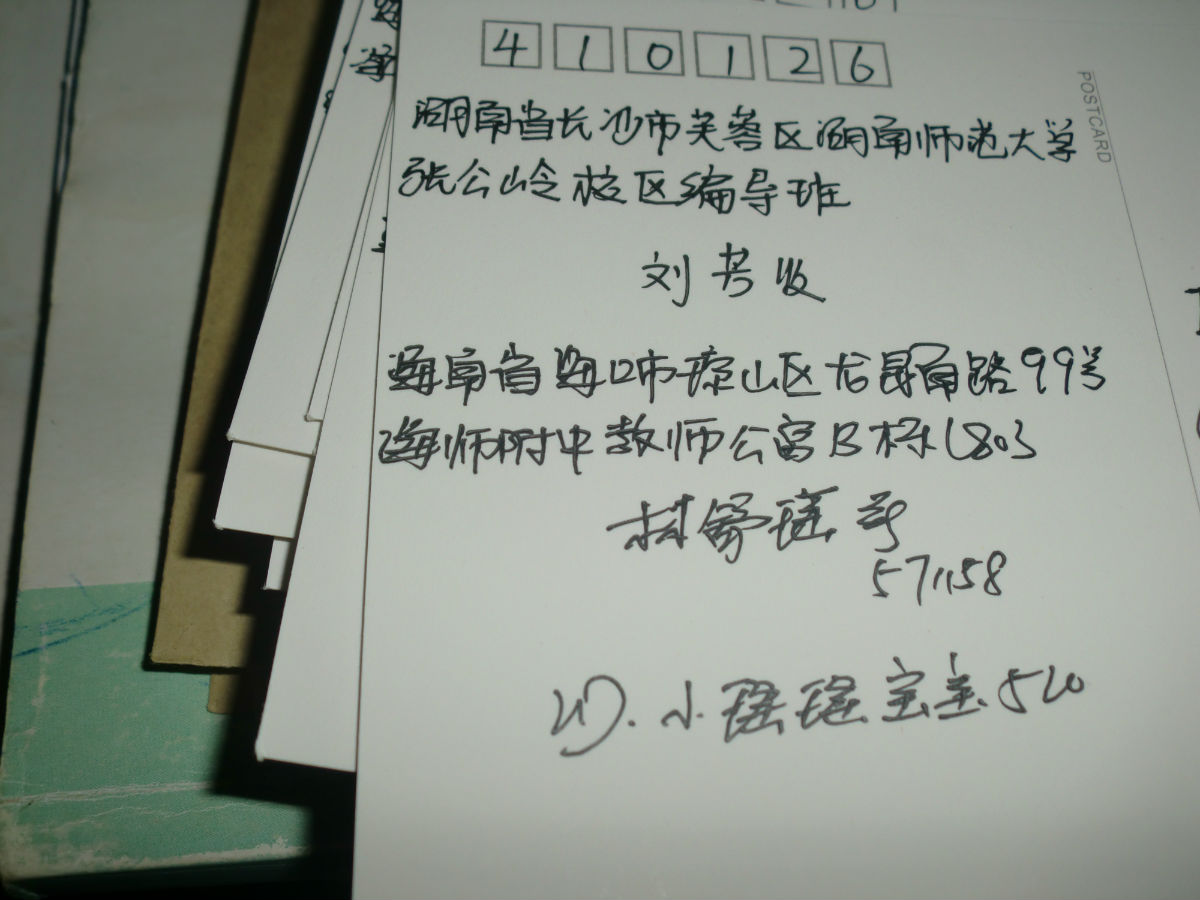 410126
POSTCARD
湖南省长沙市芙蓉区湖南师范大学
张公岭校区编导班
刘书收
海南省海口市琼山区龙昆南路99号
海师附中教师公寓B栋1803
林舒瑶寄
571158
小瑶瑶宝宝520